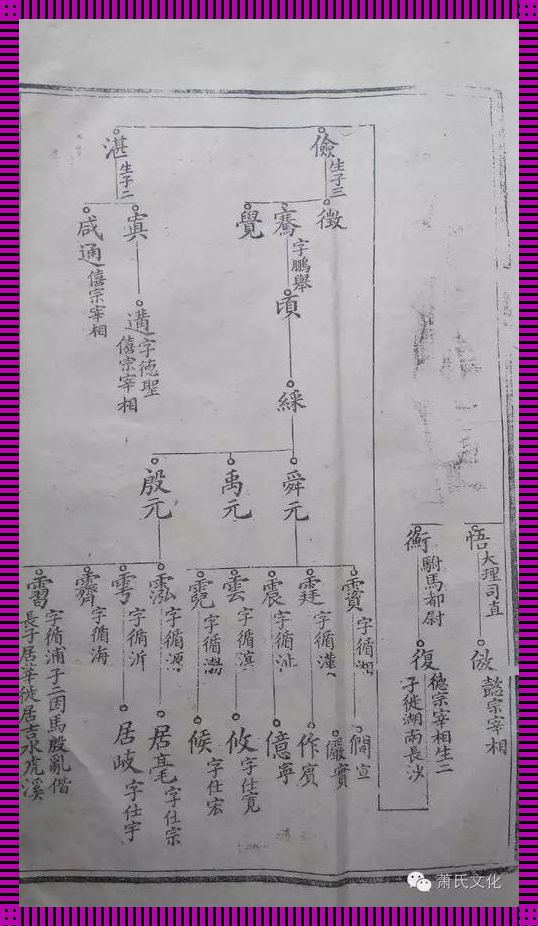 悟 大理司直
倣 懿宗宰相
衡 駙馬都尉
復 德宗宰相生二
子徙湖南長沙
儉 生子三
徵
騫 字鵬舉
覺
頃
綵
舜元
禹元
殷元
湛 生子二
寘
遘 字德聖
僖宗宰相
咸通 僖宗宰相
字循湘
僩 宣
儼 實
霆 字循漢
作 賓
震 字循沚
億 寧
雲 字循濵
攸 字仕寬
霓 字循瀚
候 字仕宏
泓 字循源
居毫 字仕宗
雩 字循沂
居岐 字仕宇
霽 字循海
霫 字循浦子二因馬殷亂偕
長子居華徙居吉水虎溪
萧氏文化